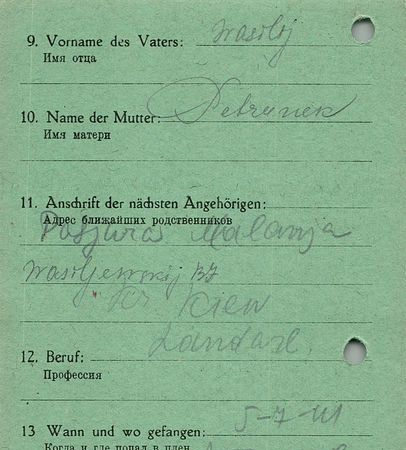 9. Vorname des Vaters: Wasilij
Имя отца
10. Name der Mutter: Petrunek
Имя матери
11. Anschrift der nächsten Angehörigen:
Адрес ближайших родственников
Malanja
Kr Kiew
12. Beruf:
Профессия
5-7-41
13 Wann und wo gefangen:
Когда и где попал в плен